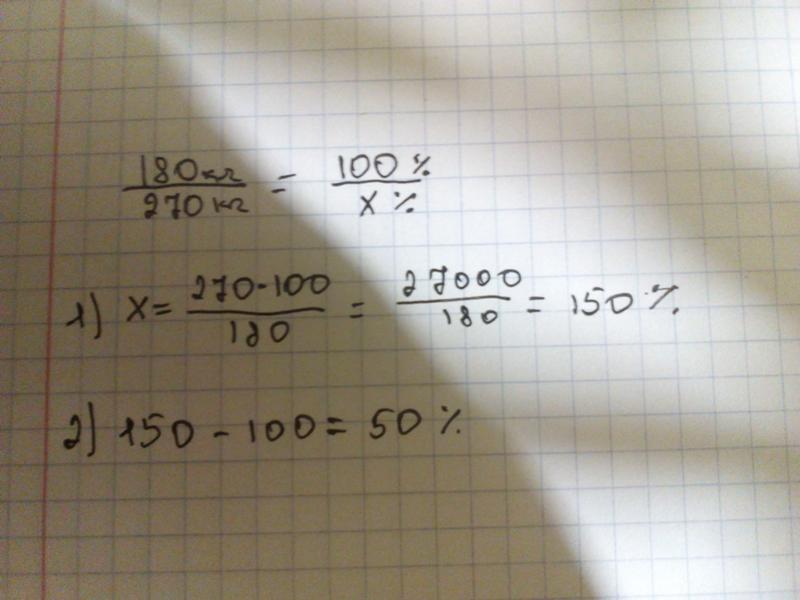 180кг/270кг = 100%/x%
1) x = 270·100/180 = 27000/180 = 150%
2) 150 - 100 = 50%